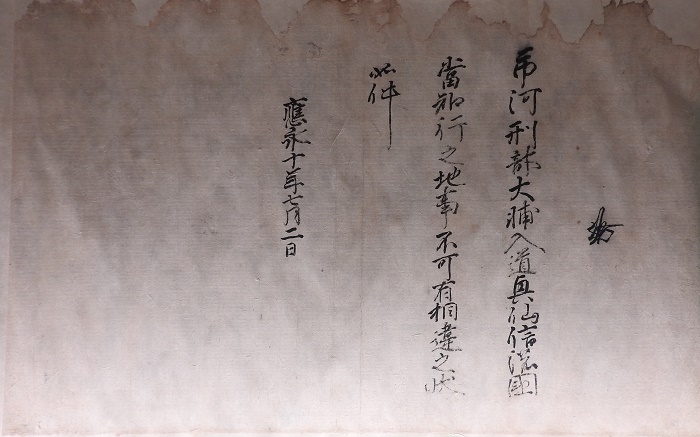 市河刑部大輔入道興仙信濃國
當知行之地事不可有相違之状
如件
應永十年七月二日